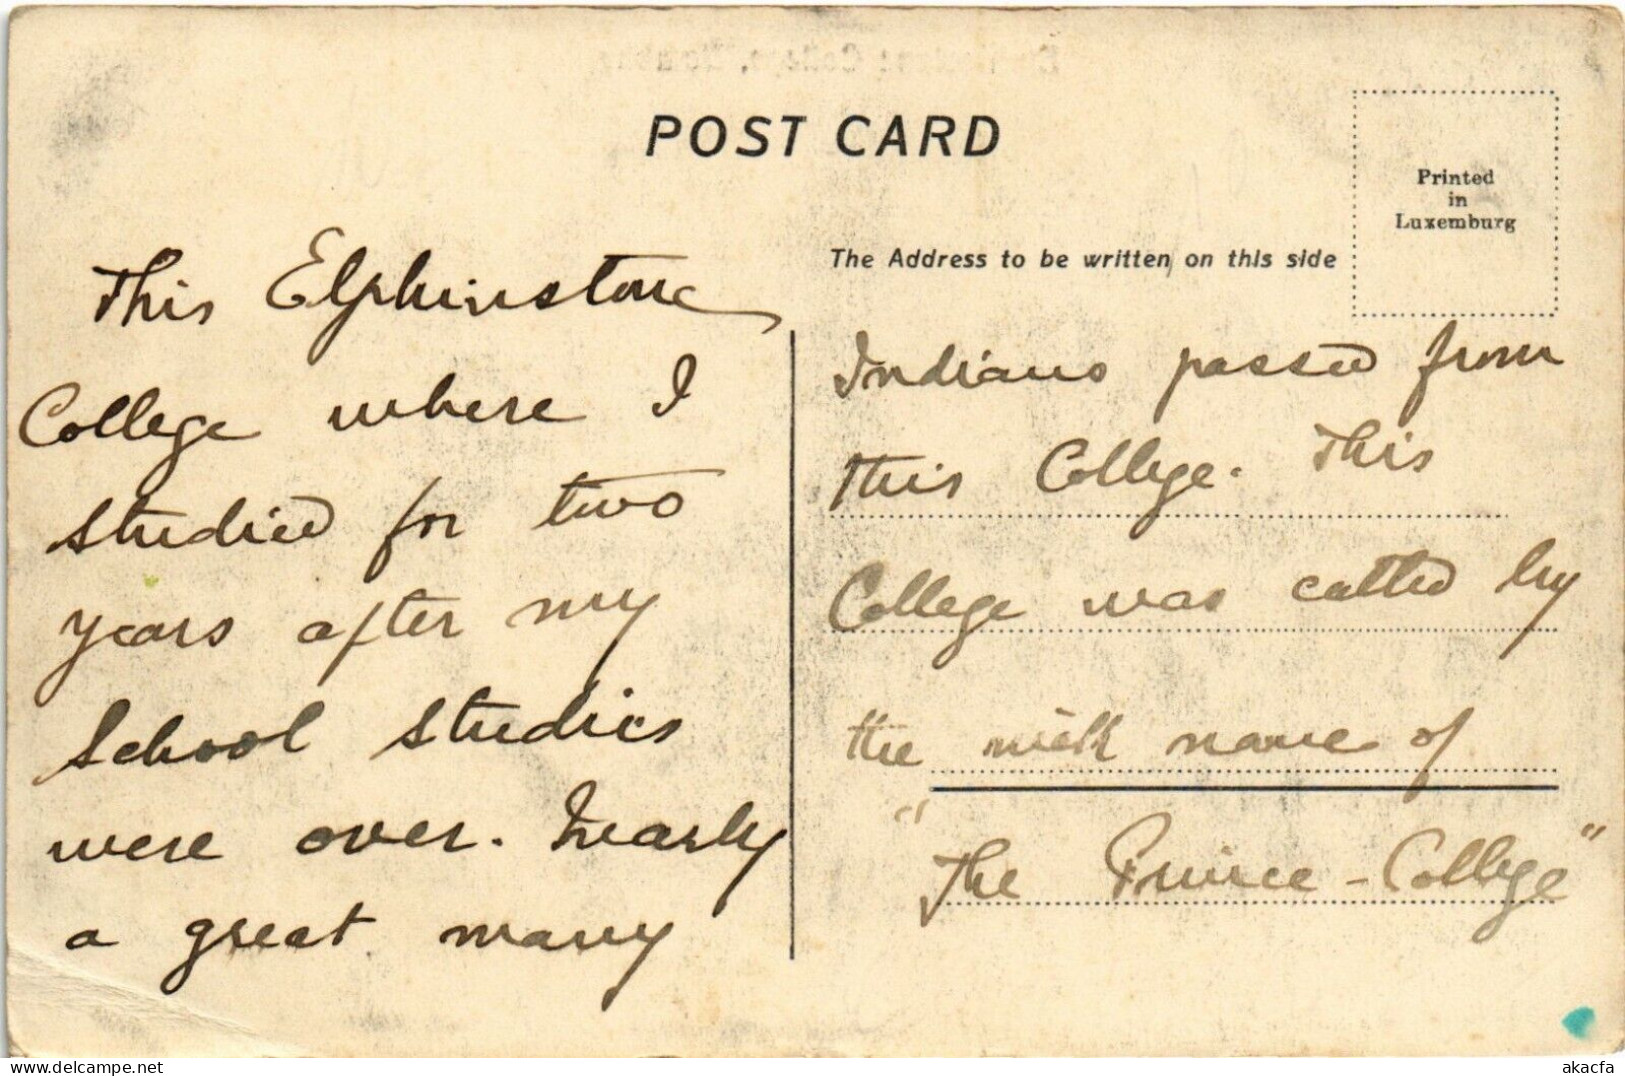 POST CARD
Printed
in
Luxemburg
The Address to be written on this side
This Elphinstone
College where I
studied for two
years after my
School studies
were over. Nearly
a great many
Indians passed from
this College. This
College was called by
the nick name of
"The Prince-College"
akacfa